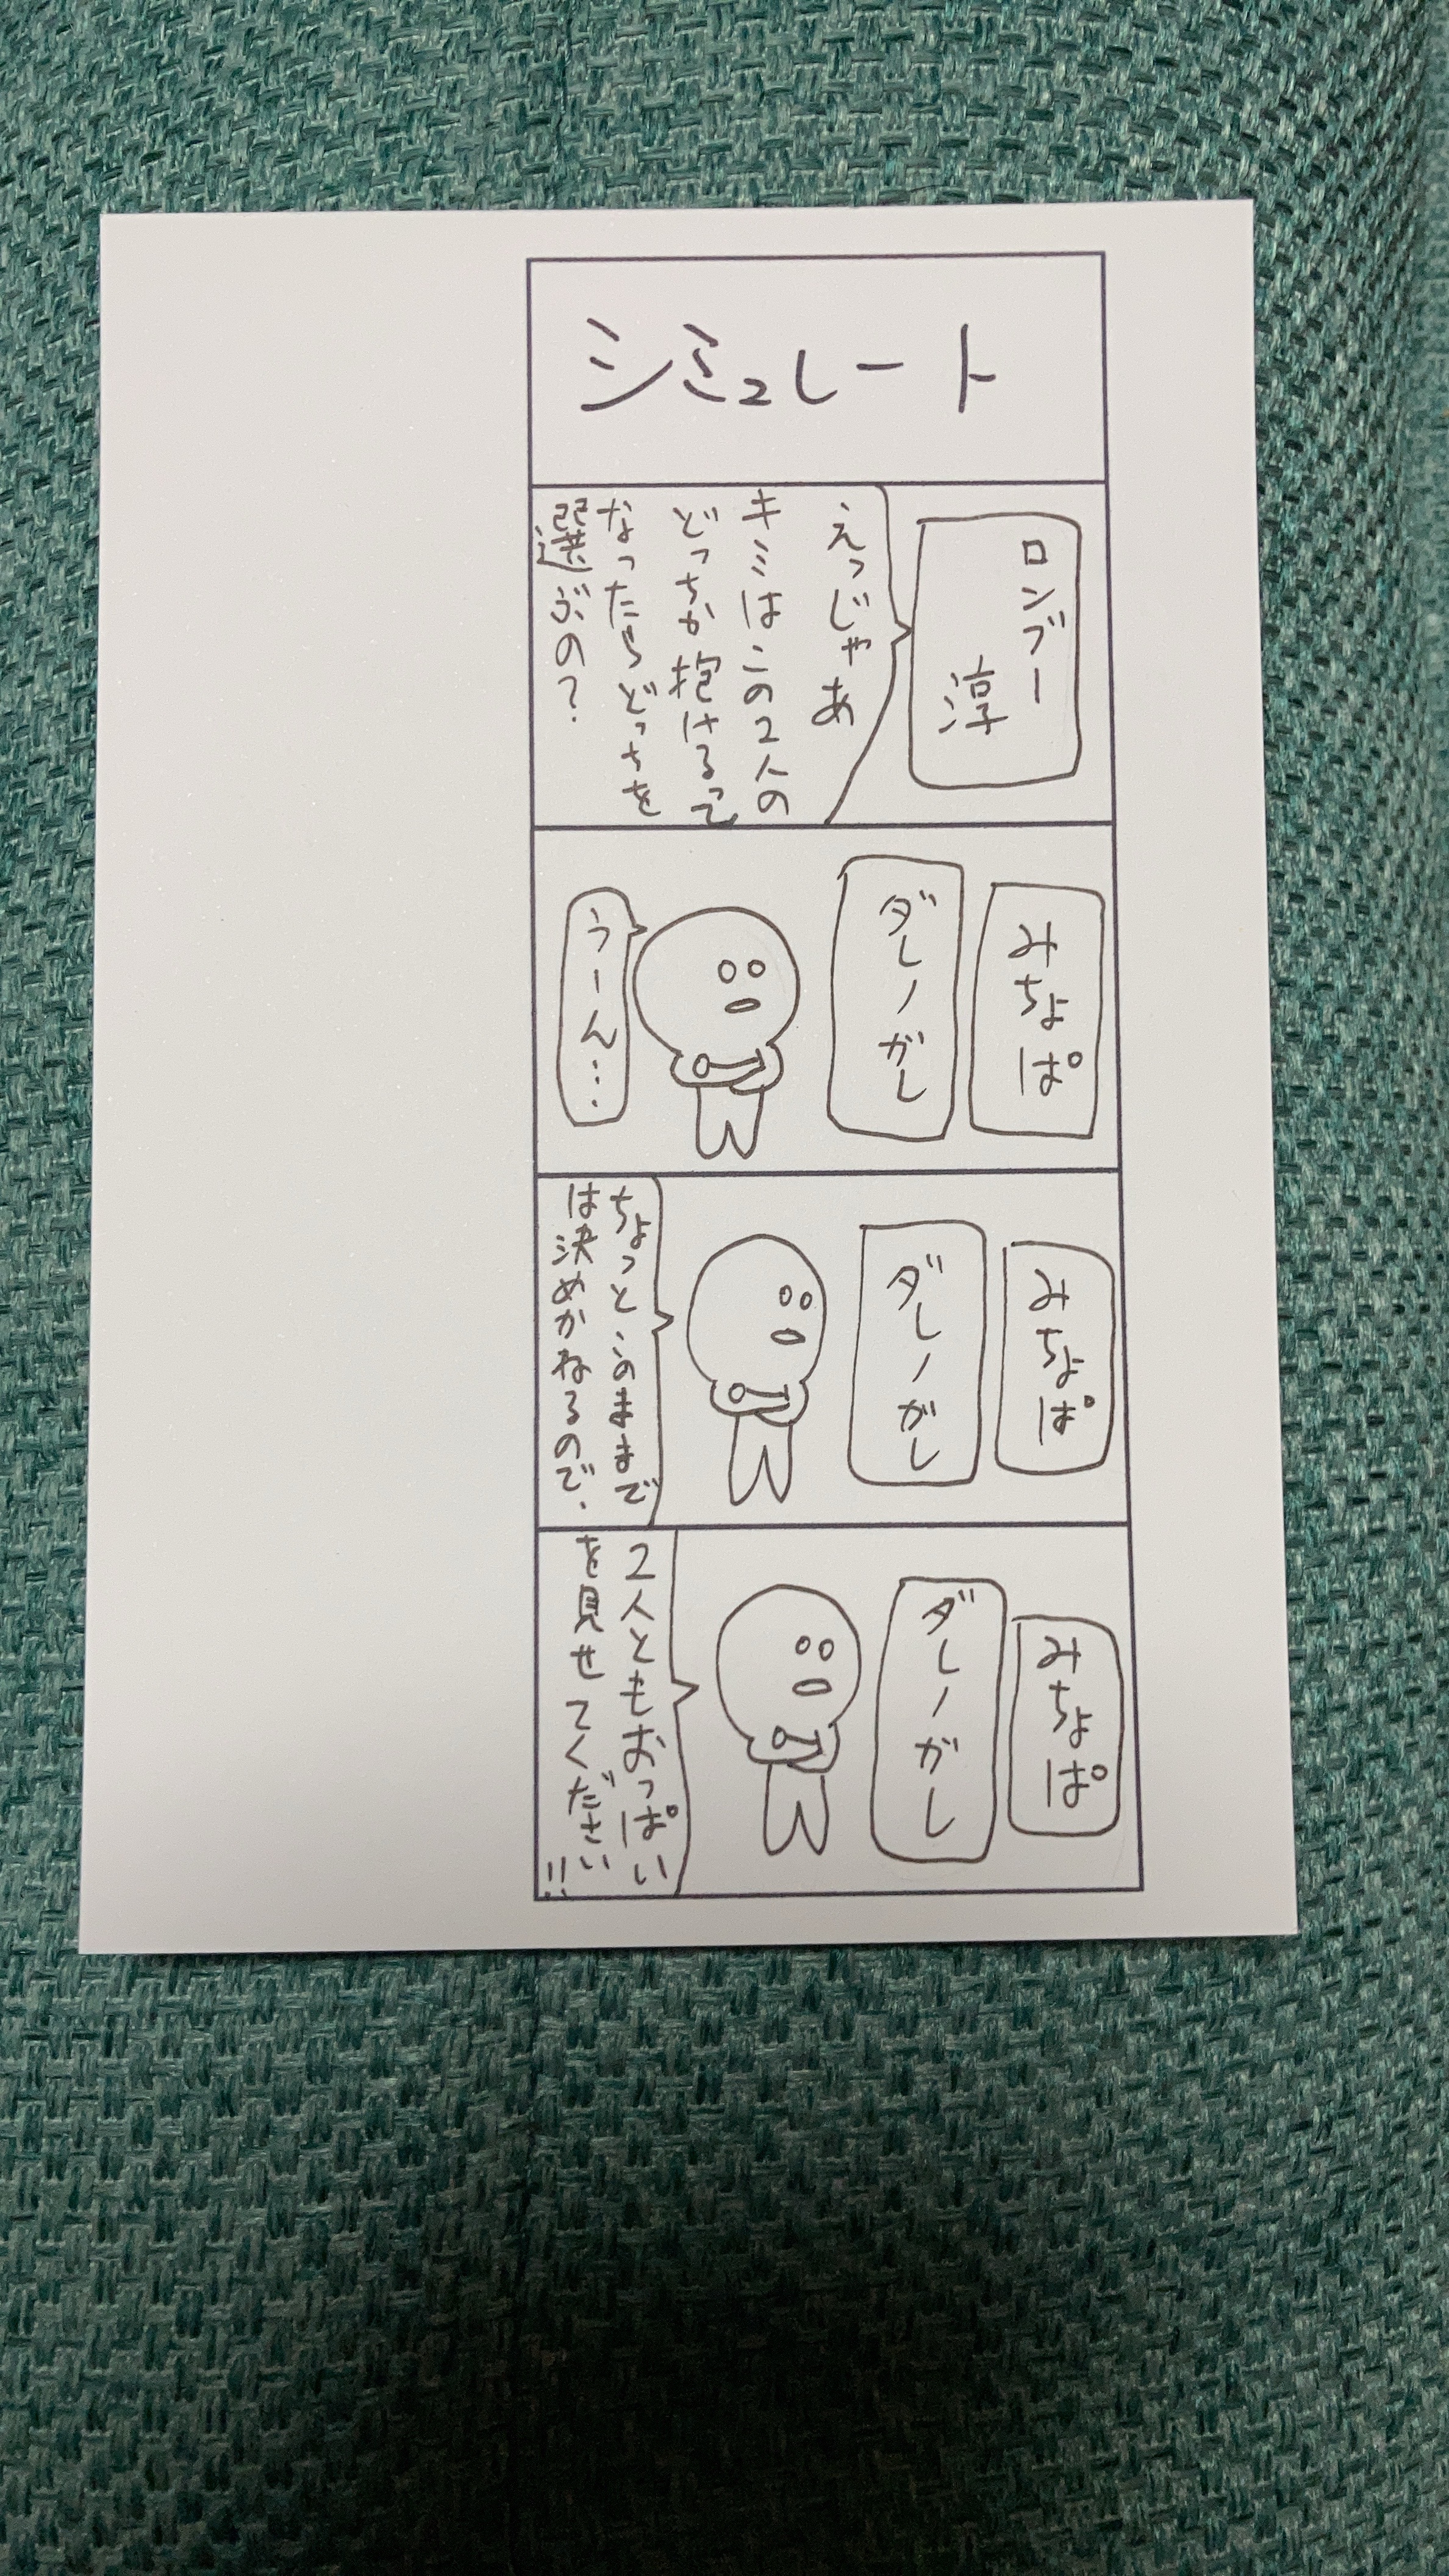 シミュレート
ロンブー
淳
えっじゃあ
キミはこの2人の
どっちか抱けるって
なったらどっちを
選ぶの?
みちょぱ
ダレノガレ
うーん…
みちょぱ
ダレノガレ
ちょっとこのままで
は決めかねるので、
みちょぱ
ダレノガレ
2人ともおっぱい
を見せてください!!